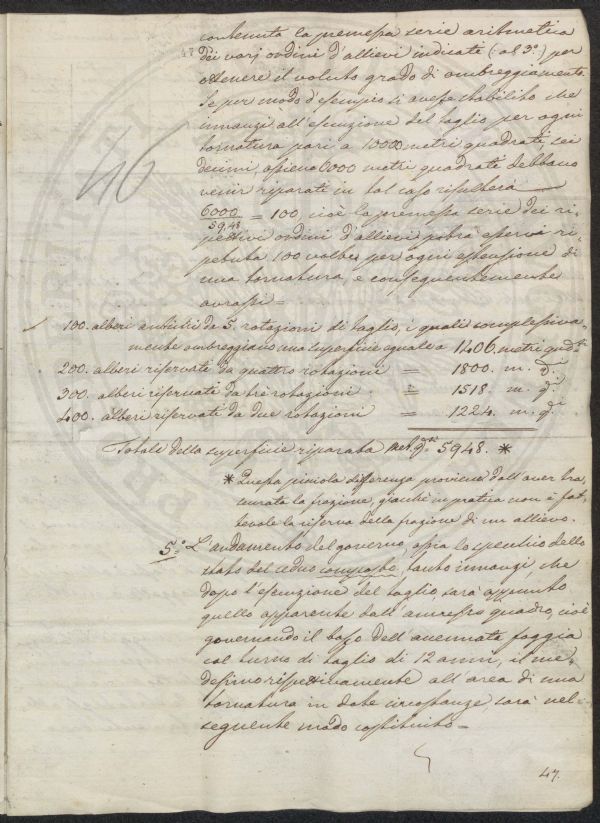 contenuta la premessa serie aritmetica
dei varj ordini d'allievi indicate (: al 3°:) per
ottenere il voluto grado di ombreggiamento.
Se per modo d'esempio si avesse stabilito che
innanzi all'esecuzione del taglio per ogni
tornatura pari a 10000 metri quadrati, sei
decimi, ossieno 6000 metri quadrati debbano
venir riparati in tal caso risulterà
6000/59,48 = 100, cioè la premessa serie dei ri-
spettivi ordini d'allievi potrà esservi ri-
petuta 100 volte per ogni estensione di
una tornatura, e conseguentemente
avrassi =
100. alberi antichi da 5. rotazioni di taglio, i quali complessiva-
mente ombreggiano una superficie eguale a 1406. metri qudti
200. alberi riservati da quattro rotazioni = 1800. m. qi
300. alberi riservati da trè rotazioni = 1518. m. qi
400. alberi riservati da due rotazioni = 1224. m. qi
Totale della superficie riparata met. qti 5948. *
* Questa piccola differenza proviene dall'aver tra-
scurata la frazione, giacchè in pratica non è fat-
tevole la riserva della frazione di un allievo.
5° L'andamento del governo, ossia lo specchio dello
stato del ceduo composto, tanto innanzi, che
dopo l'esecuzione del taglio, sarà appunto
quello apparente dall'annesso quadro, cioè
governando il bosco dell'accennata foggia
col turno di taglio di 12 anni, il me-
desimo rispettivamente all'area di una
tornatura in date circostanze, sarà nel
seguente modo costituito =
47.
46
47